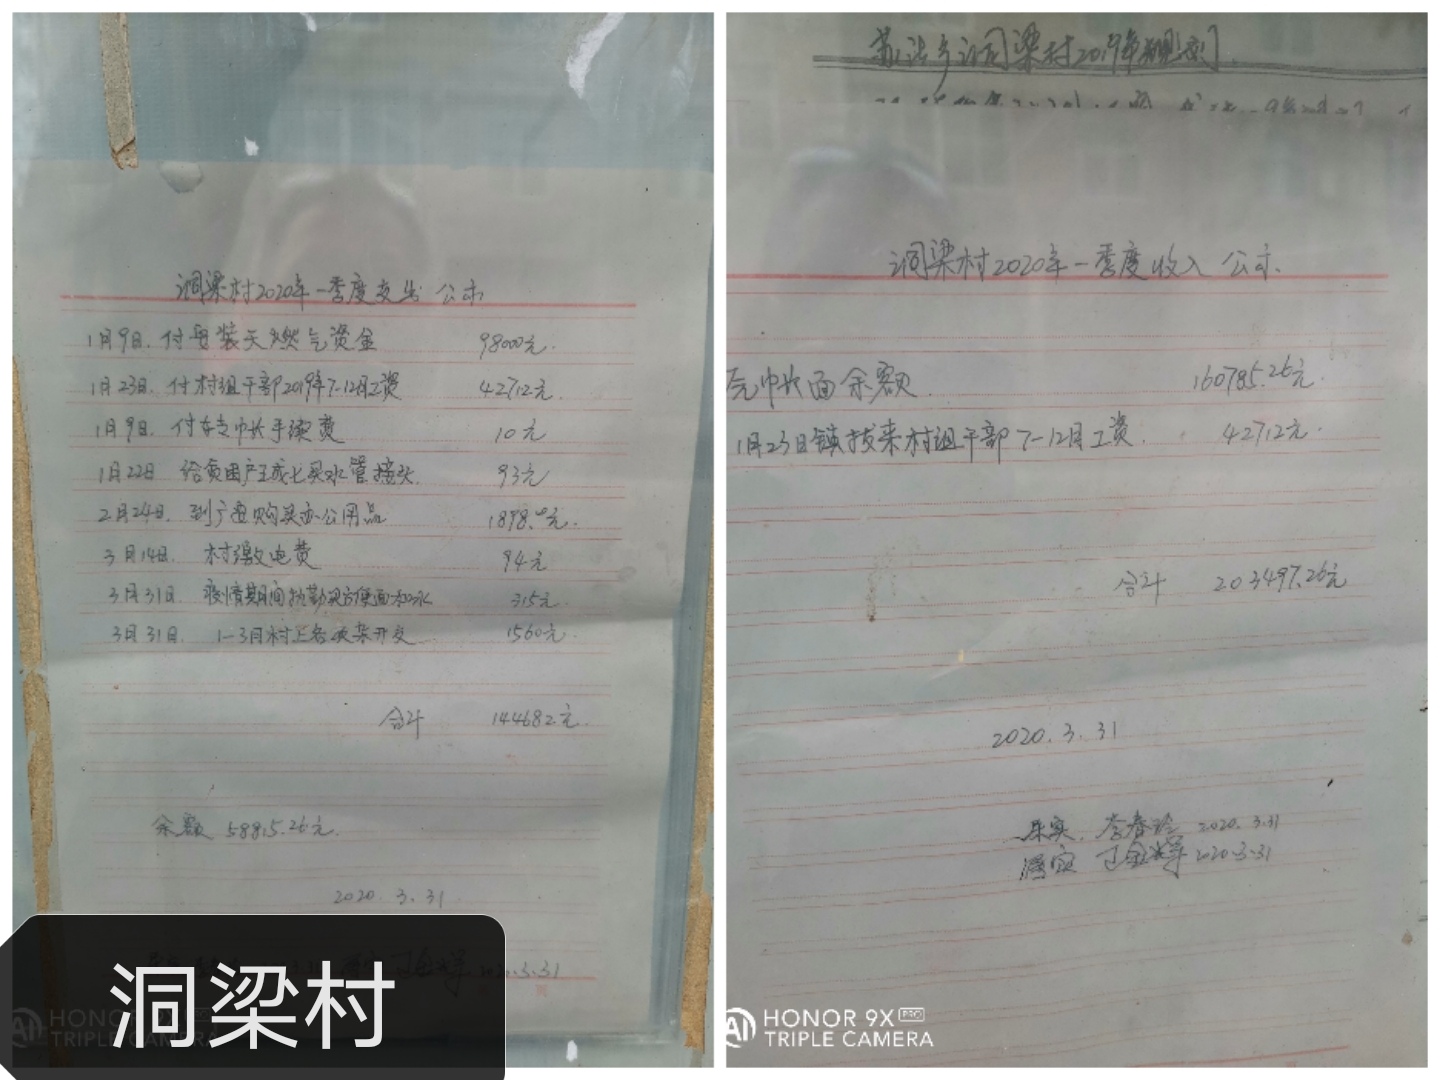 洞梁村2020年一季度支出公示
1月9日.付安装天燃气资金 98000元.
1月23日.付村组干部2019年7-12月工资 42712元.
1月9日.付转支帐手续费 10元
1月22日 给贫困户王成七买水管接头. 93元
2月24日.到广通购买办公用品 1898.00元.
3月14日. 村缴电费 94元
3月31日. 疫情期间执勤买方便面和水 315元.
3月31日. 1-3月村上各项杂开支 1560元.
合计 144682元.
余额 58815.26元.
2020.3.31
2020.3.31
洞梁村
洞梁村2019年
洞梁村2020年一季度收入公示.
元帐面余额. 160785.26元.
1月23日镇拔来村组干部7-12月工资. 42712元.
合计 203497.26元
2020.3.31
李春玲 2020.3.31
2020.3.31
HONOR 9X PRO
TRIPLE CAMERA
AI HONOR 9X PRO
TRIPLE CAMERA